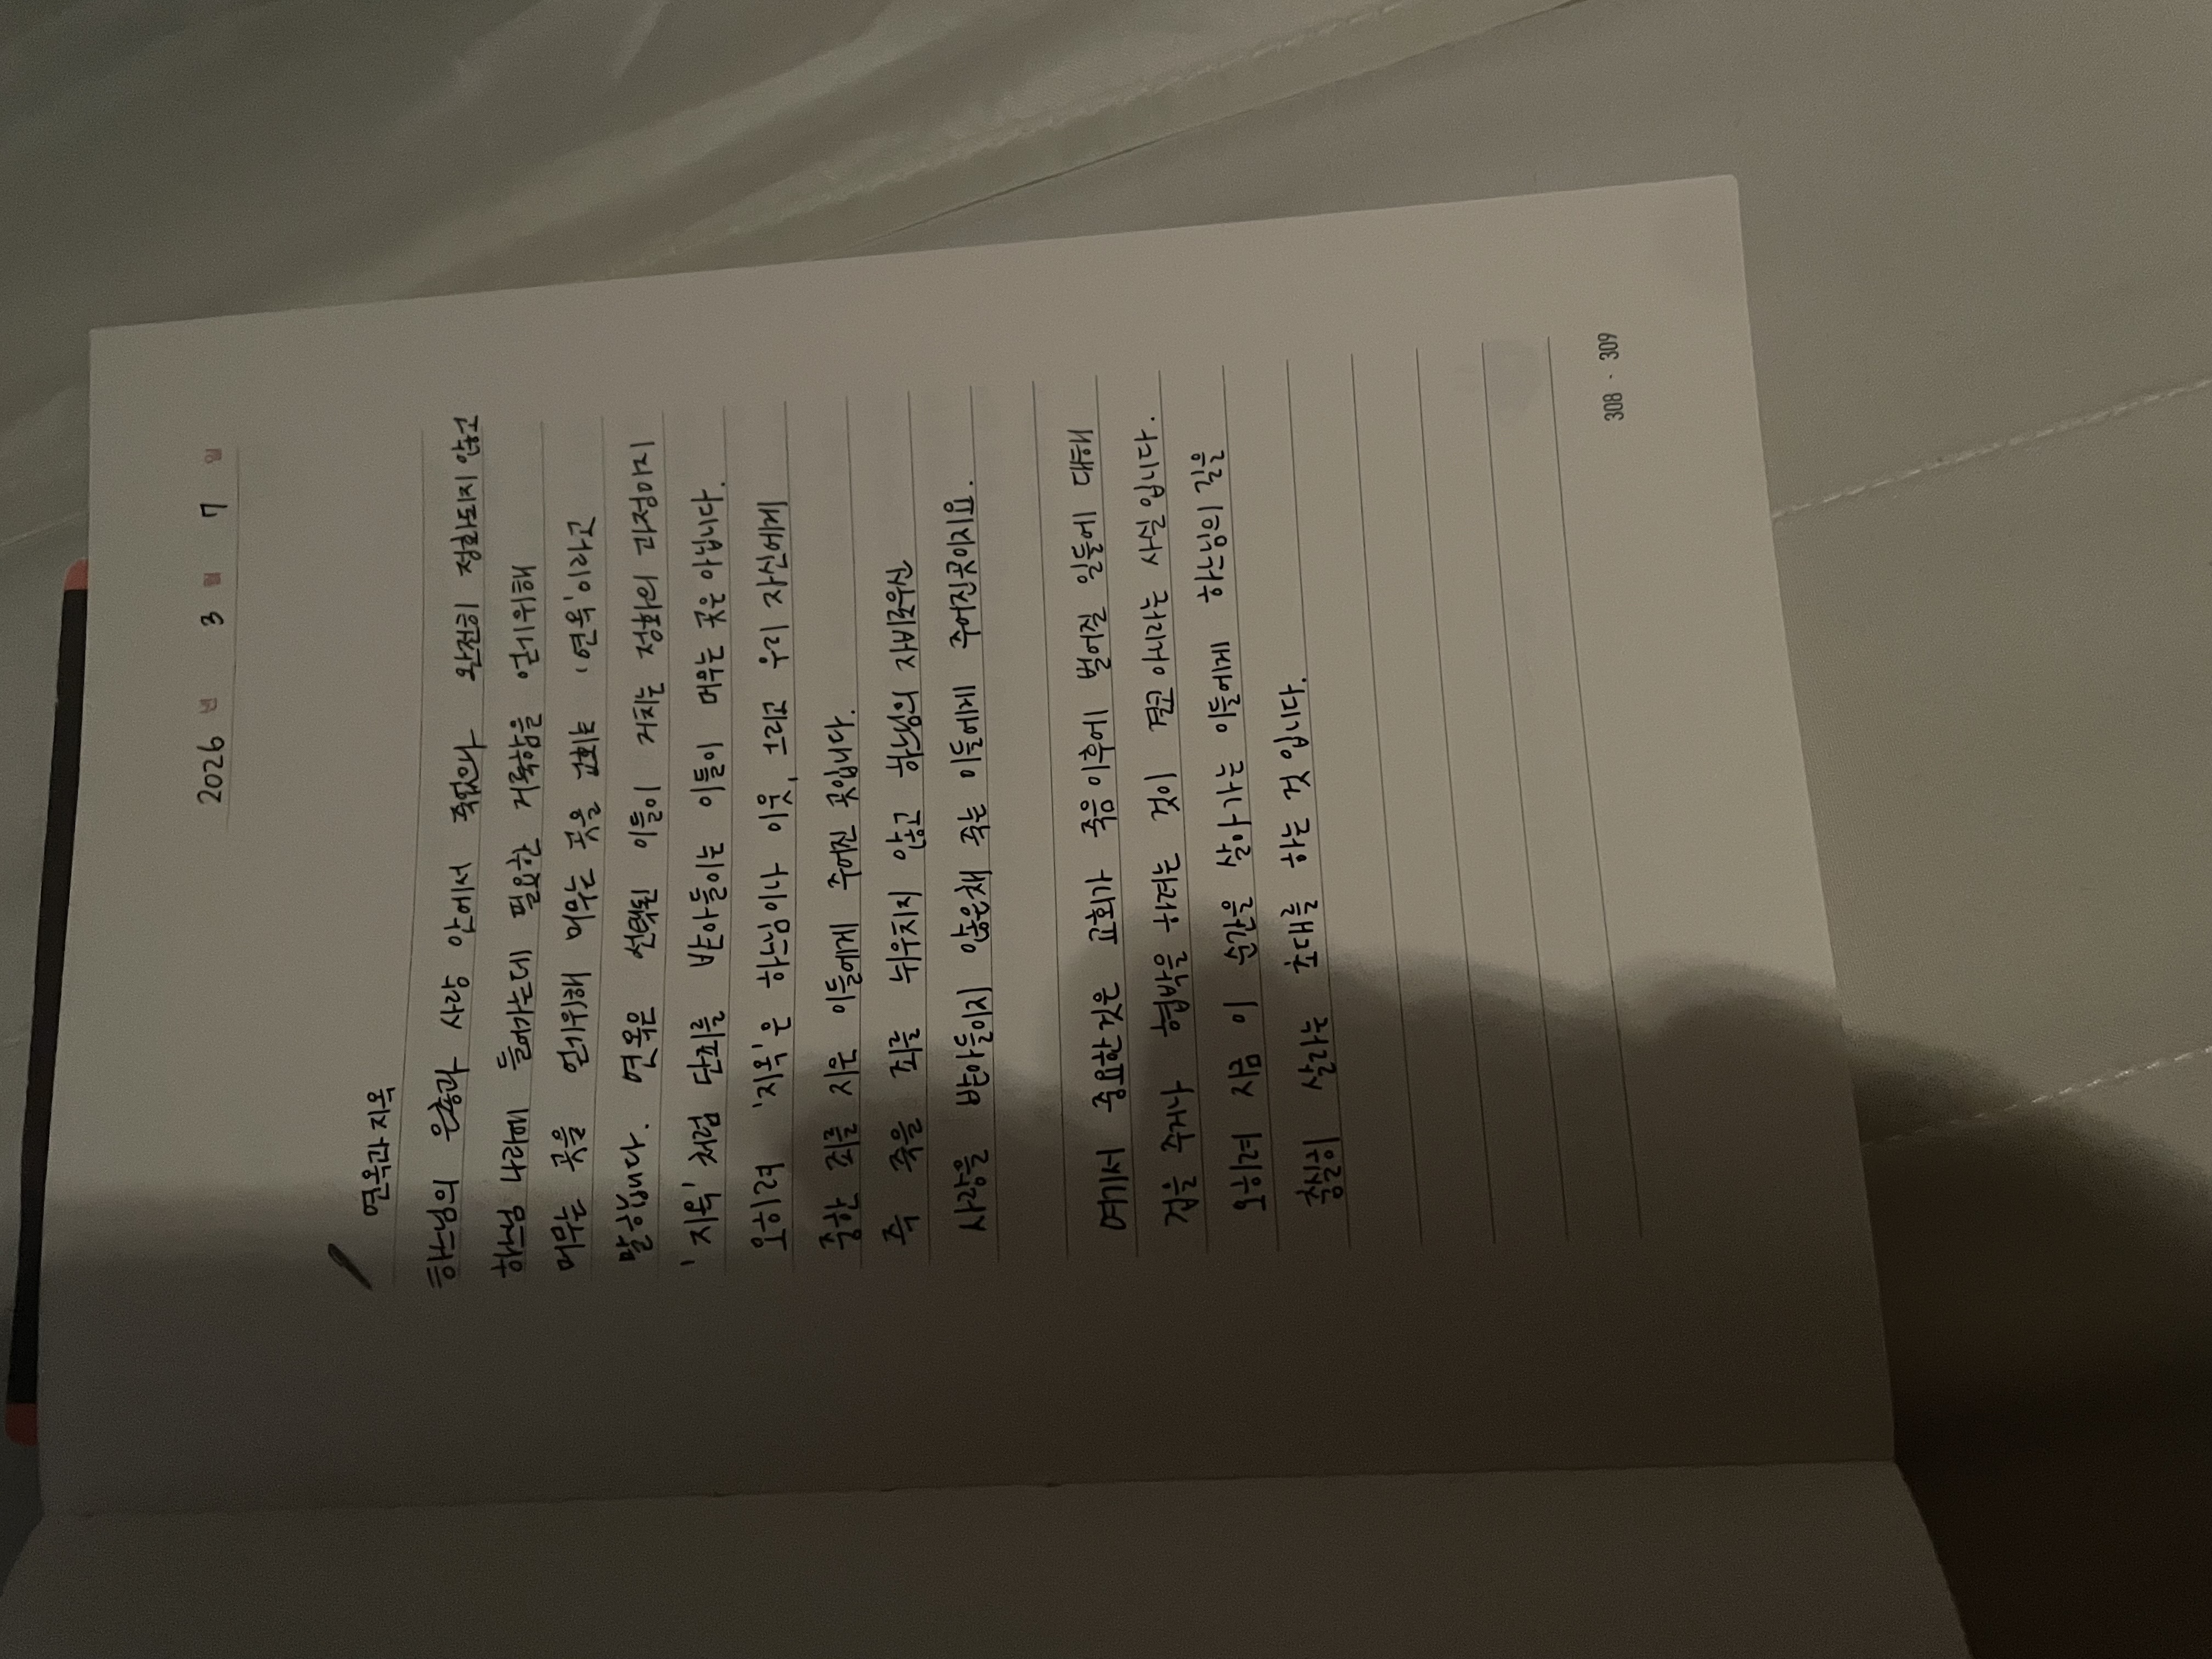 2026 년 3 월 7 일
연옥과 지옥
하느님의 은총과 사랑 안에서 죽었으나 완전히 정화되지 않고
하느님 나라에 들어가는데 필요한 거룩함을 얻기위해
머무는 곳을 얻기위해 머무는 곳을 교회는 '연옥'이라고
말합니다. 연옥은 선택된 이들이 거치는 정화의 과정이지
'지옥' 처럼 단죄를 받아들이는 이들이 머무는 곳은 아닙니다.
오히려 '지옥'은 하느님이나 이웃, 그리고 우리 자신에게
중한 죄를 지은 이들에게 주어진 곳입니다.
주 죽을 죄를 뉘우치지 않고 하느님의 자비로우신
사랑을 받아들이지 않은채 죽는 이들에게 주어진곳이지요.
여기서 중요한것은 교회가 죽음 이후에 벌어질 일들에 대해
겁을 주거나 협박을 하려는 것이 결코 아니라는 사실 입니다.
오히려 지금 이 순간을 살아가는 이들에게 하느님의 길을
충실히 살라는 초대를 하는 것 입니다.
308 · 309